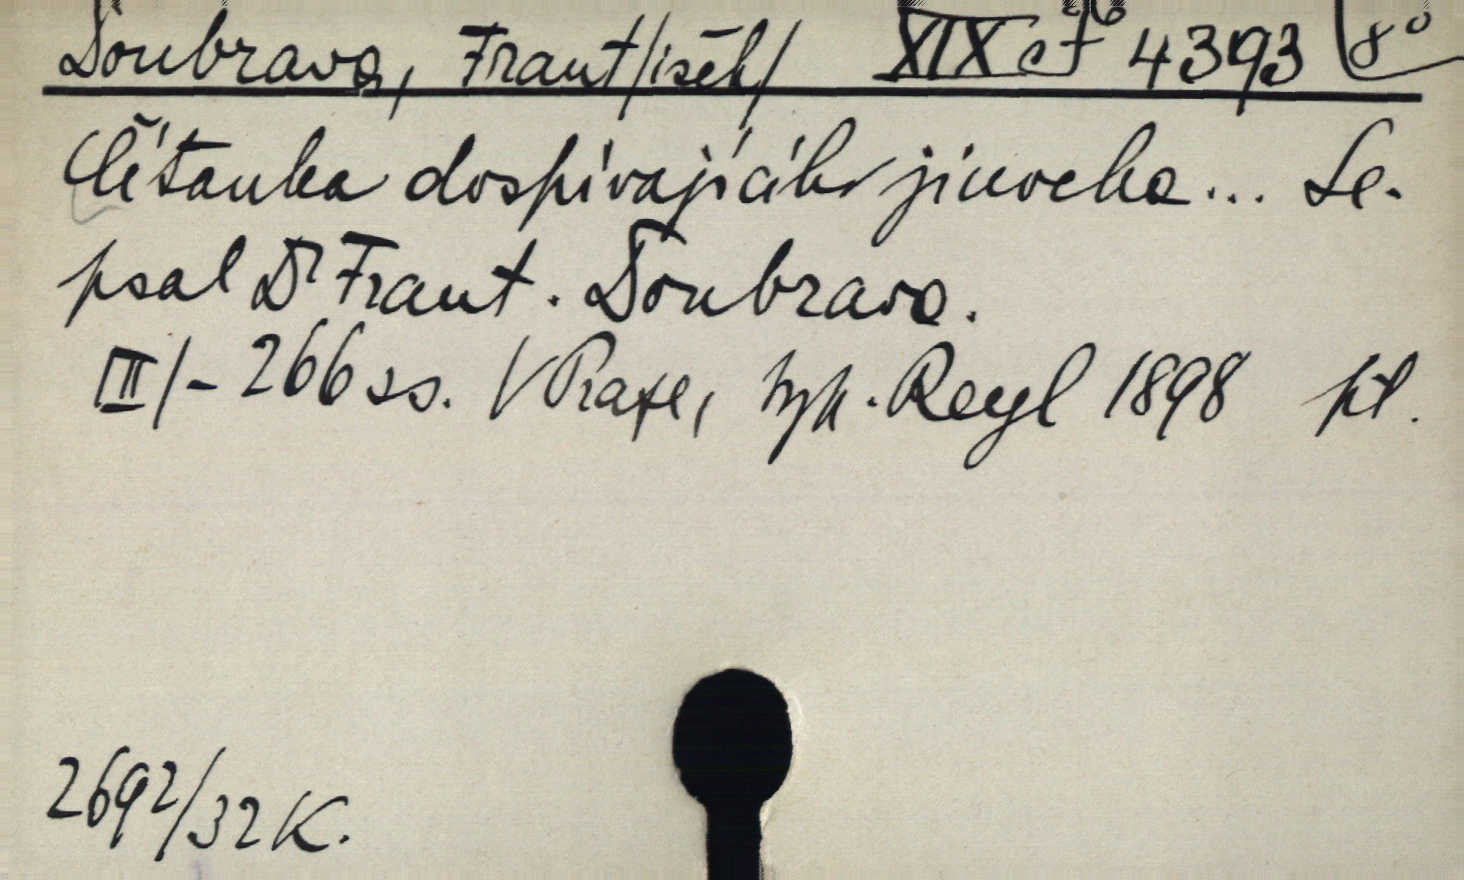 Doubrava, Frant/išek/ XIX c f 26 4393 8°
Čítanka dospívajícího jinocha... Se-
psal Dr Frant. Doubrava.
III/-266 ss. V Praze, typ. Reyl 1898 pl.
2692/32 K.